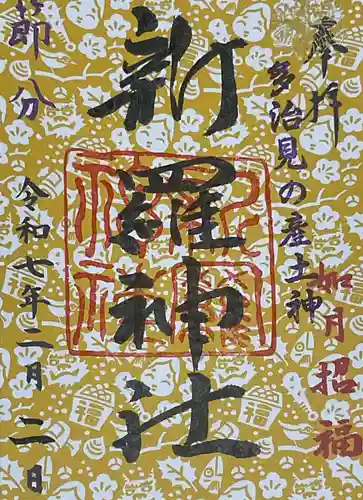 奉拝
多治見の産土神
如月招福
新羅神社
節分
令和七年二月二日
福
福